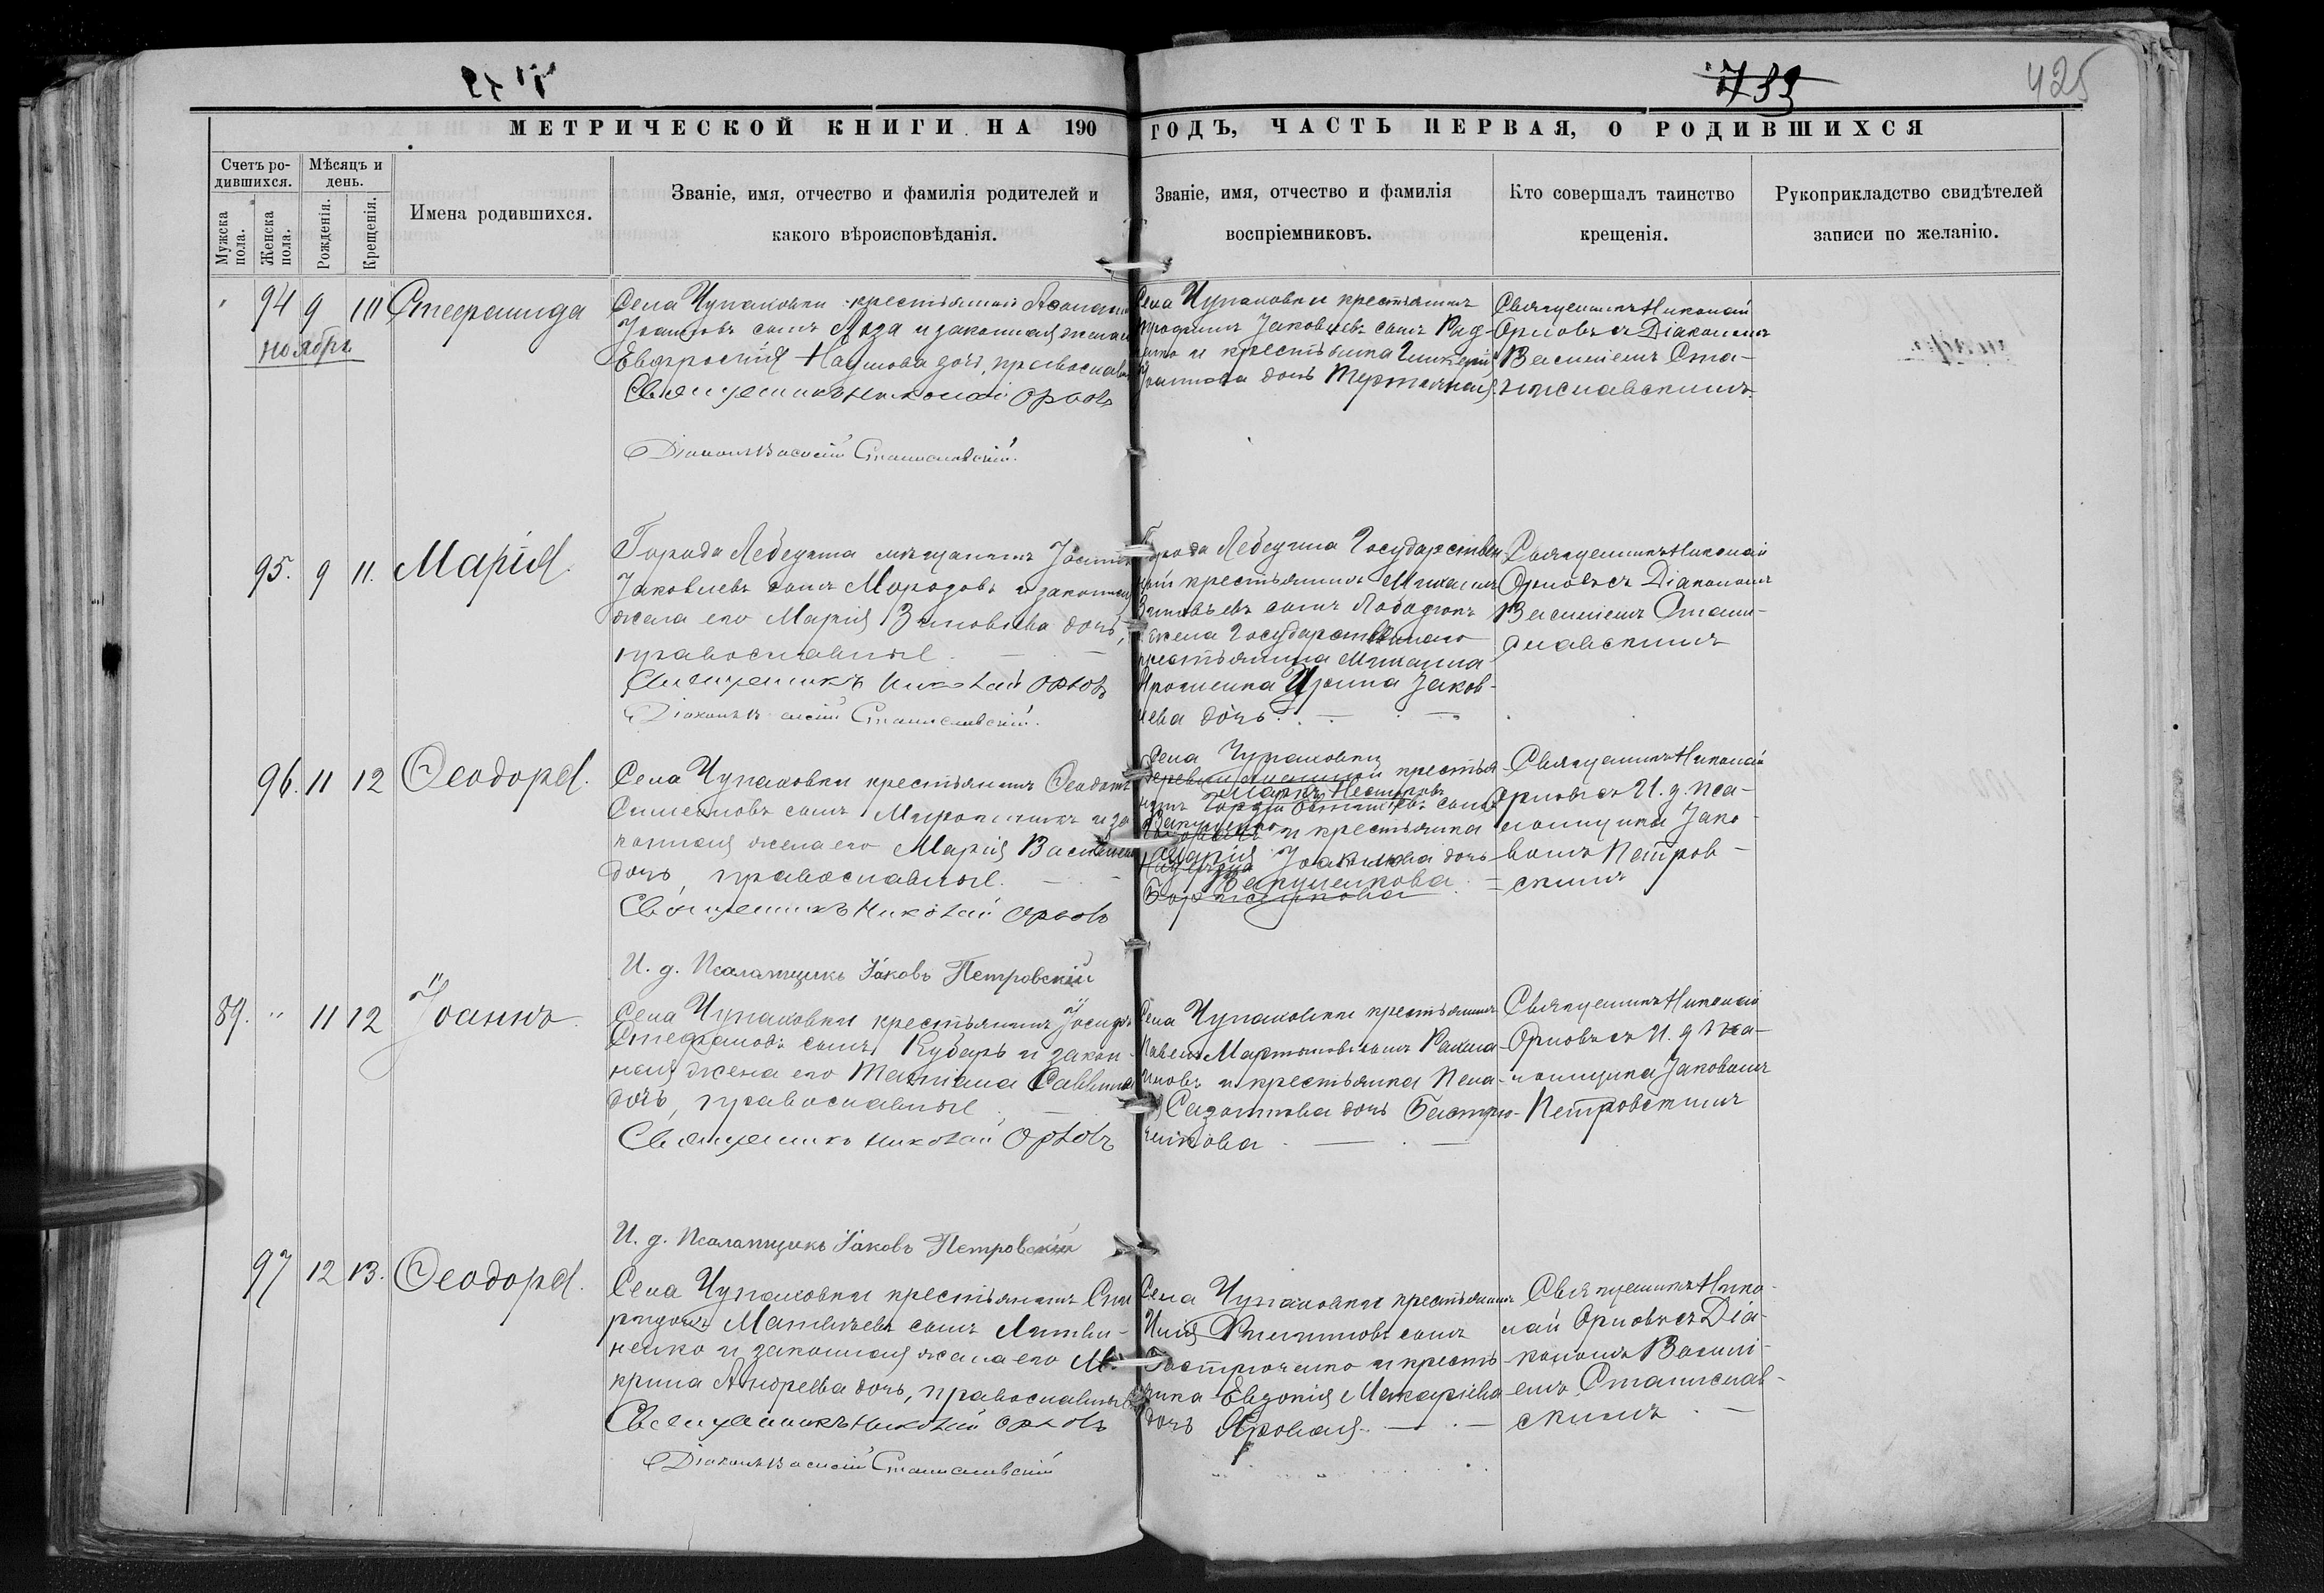 733
425
МЕТРИЧЕСКОЙ КНИГИ НА 190 ГОДЪ, ЧАСТЬ ПЕРВАЯ, О РОДИВШИХСЯ
Счетъ ро-
дившихся.
Мѣсяцъ и
день.
Мужска
пола.
Женска
пола.
Рожденія.
Крещенія.
Имена родившихся.
Званіе, имя, отчество и фамилія родителей и
какого вѣроисповѣданія.
Званіе, имя, отчество и фамилія
воспріемниковъ.
Кто совершалъ таинство
крещенія.
Рукоприкладство свидѣтелей
записи по желанію.
94 9
ноября
Села Чупаховки крестьянинъ
Іоанновъ сынъ и законная жена
Евфросинія Наумова дочь,
Священникъ Николай Орловъ
Діаконъ Василій Станиславскій
Села Чупаховки крестьянинъ
Трофимъ Іаковлевъ сынъ Руд-
и крестьянка
Іоаннова дочь
Священникъ Николай
Орловъ съ Діакономъ
Василіемъ Ста-
ниславскимъ
95. 9 11. Марія
Города Лебедина мѣщанинъ
Іаковлевъ сынъ Морозовъ и законная
жена его Марія Зиновіева дочь,
православные
Священникъ Николай Орловъ
Діаконъ Василій Станиславскій.
Города Лебедина Государствен
ный крестьянинъ Михаилъ
Зиновьевъ сынъ
жена Государственнаго
крестьянина Михаила
Ирина Іаков-
лева дочь.
Священникъ Николай
Орловъ съ Діакономъ
Василіемъ Стани-
славскимъ
96. 11 12 Ѳеодора.
Села Чупаховки крестьянинъ Ѳеодотъ
Симеоновъ сынъ и за
конная жена его Марія
дочь, православные.
Священникъ Николай Орловъ
И. д. Псаломщикъ Іаковъ Петровскій
Села Чупаховки
крестья
Маркъ Несторовъ
нинъ сынъ
и крестьянка
Марія Іоакимова дочь
Вакуленкова
Священникъ Николай
Орловъ съ И. д. пса-
ломщика Іако-
вомъ Петров-
скимъ
89. " 11 12 Іоаннъ
Села Чупаховки крестьянинъ Іосифъ
Стефановъ сынъ Кубарь и закон-
ная жена его Татіана Саввина
дочь, православные
Священникъ Николай Орловъ
И. д. Псаломщикъ Іаковъ Петровскій
Села Чупаховки крестьянинъ
Павелъ Мартиновъ сынъ
и крестьянка Пела-
Сазонтова дочь
Священникъ Николай
Орловъ съ И. д Пса-
ломщика Іаковомъ
Петровскимъ
97 12 13. Ѳеодора.
Села Чупаховки крестьянинъ Спи
ридонъ Матвѣевъ сынъ Литви-
ненко и законная жена его Ма
крина Андреева дочь, православные
Священникъ Николай Орловъ
Діаконъ Василій Станиславскій
Села Чупаховки крестьянинъ
Илія Филипповъ сынъ
и кресть
янка Евдокія Макаріева
дочь Яровая.
Священникъ Нико-
лай Орловъ съ Діа-
кономъ Васили-
емъ Станислав-
скимъ